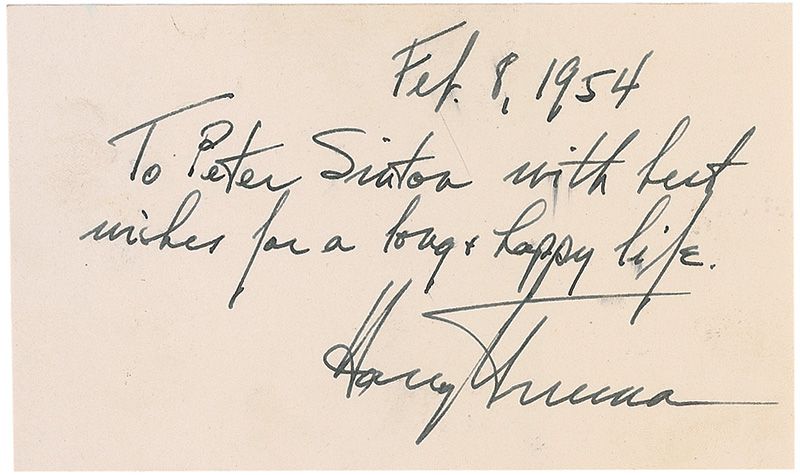 Feb. 8, 1954
To Peter Sinton with best
wishes for a long & happy life.
Harry Truman